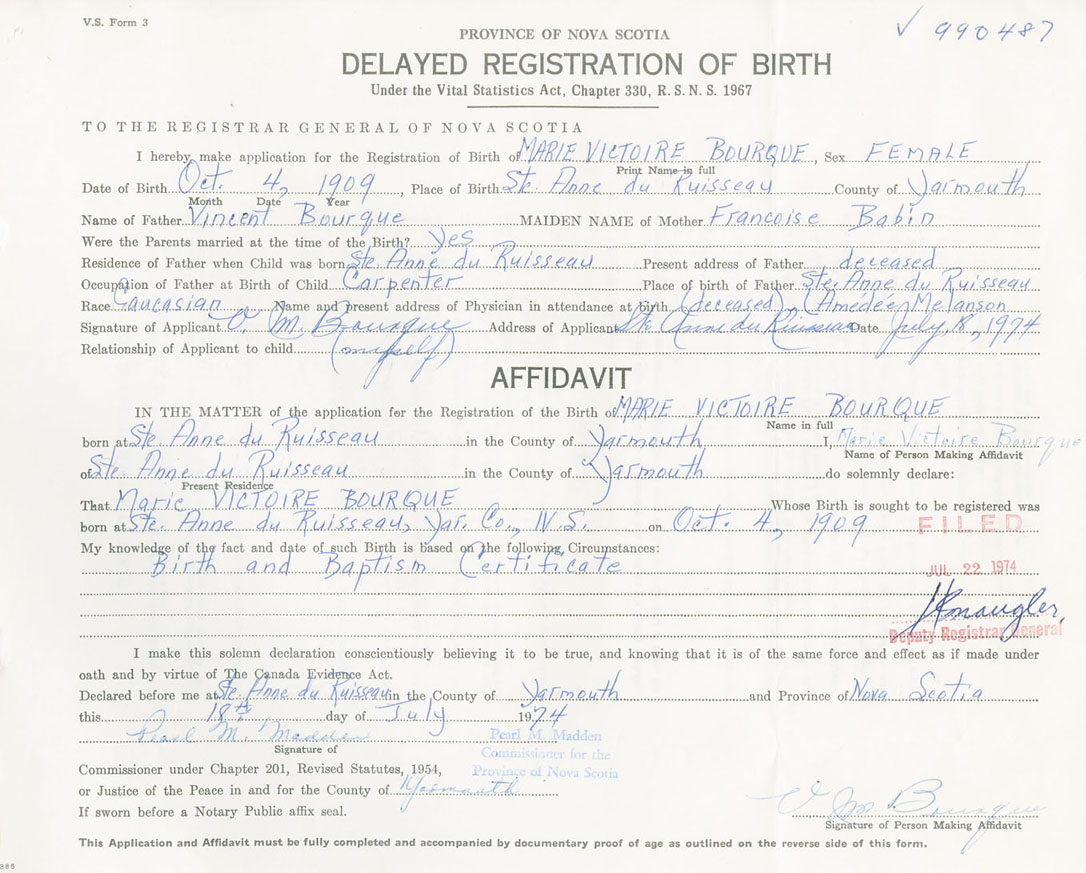 V.S. Form 3
√ 990487
PROVINCE OF NOVA SCOTIA
DELAYED REGISTRATION OF BIRTH
Under the Vital Statistics Act, Chapter 330, R.S.N.S. 1967
TO THE REGISTRAR GENERAL OF NOVA SCOTIA
I hereby make application for the Registration of Birth of MARIE VICTOIRE BOURQUE, Sex FEMALE
Print Name in full
Date of Birth Oct. 4, 1909, Place of Birth Ste. Anne du Ruisseau County of Yarmouth
Month Date Year
Name of Father Vincent Bourque MAIDEN NAME of Mother Francoise Babin
Were the Parents married at the time of the Birth? yes
Residence of Father when Child was born Ste. Anne du Ruisseau Present address of Father deceased
Occupation of Father at Birth of Child Carpenter Place of birth of Father Ste. Anne du Ruisseau
Race Caucasian Name and present address of Physician in attendance at birth (deceased) (Amédée Melanson
Signature of Applicant V. M. Bourque Address of Applicant Ste Anne du Ruisseau Date July, 18, 1974
Relationship of Applicant to child (myself)
AFFIDAVIT
IN THE MATTER of the application fer the Registration of the Birth of MARIE VICTOIRE BOURQUE
Name in full
born at Ste. Anne du Ruisseau in the County of Yarmouth I, Marie Victoire Bourque
Name of Person Making Affidavit
of Ste. Anne du Ruisseau in the County of Yarmouth do solemnly declare:
Present Residence
That Marie VICTOIRE BOURQUE Whose Birth is sought to be registered was
born at Ste. Anne du Ruisseau, Yar. Co., N.S. on Oct. 4, 1909
FILED
My knowledge of the fact and date of such Birth is based on the following Circumstances:
Birth and Baptism Certificate
JUL 22 1974
Deputy Registrar General
I make this solemn declaration conscientiously believing it to be true, and knowing that it is of the same force and effect as if made under
oath and by virtue of The Canada Evidence Act.
Declared before me at Ste. Anne du Ruisseau in the County of Yarmouth and Province of Nova Scotia
this 18th day of July 1974
Pearl M. Madden
Signature of
Pearl M. Madden
Commissioner for the
Province of Nova Scotia
Commissioner under Chapter 201, Revised Statutes, 1954,
or Justice of the Peace in and for the County of Yarmouth
If sworn before a Notary Public affix seal.
V. M. Bourque
Signature of Person Making Affidavit
This Application and Affidavit must be fully completed and accompanied by documentary proof of age as outlined on the reverse side of this form.
385